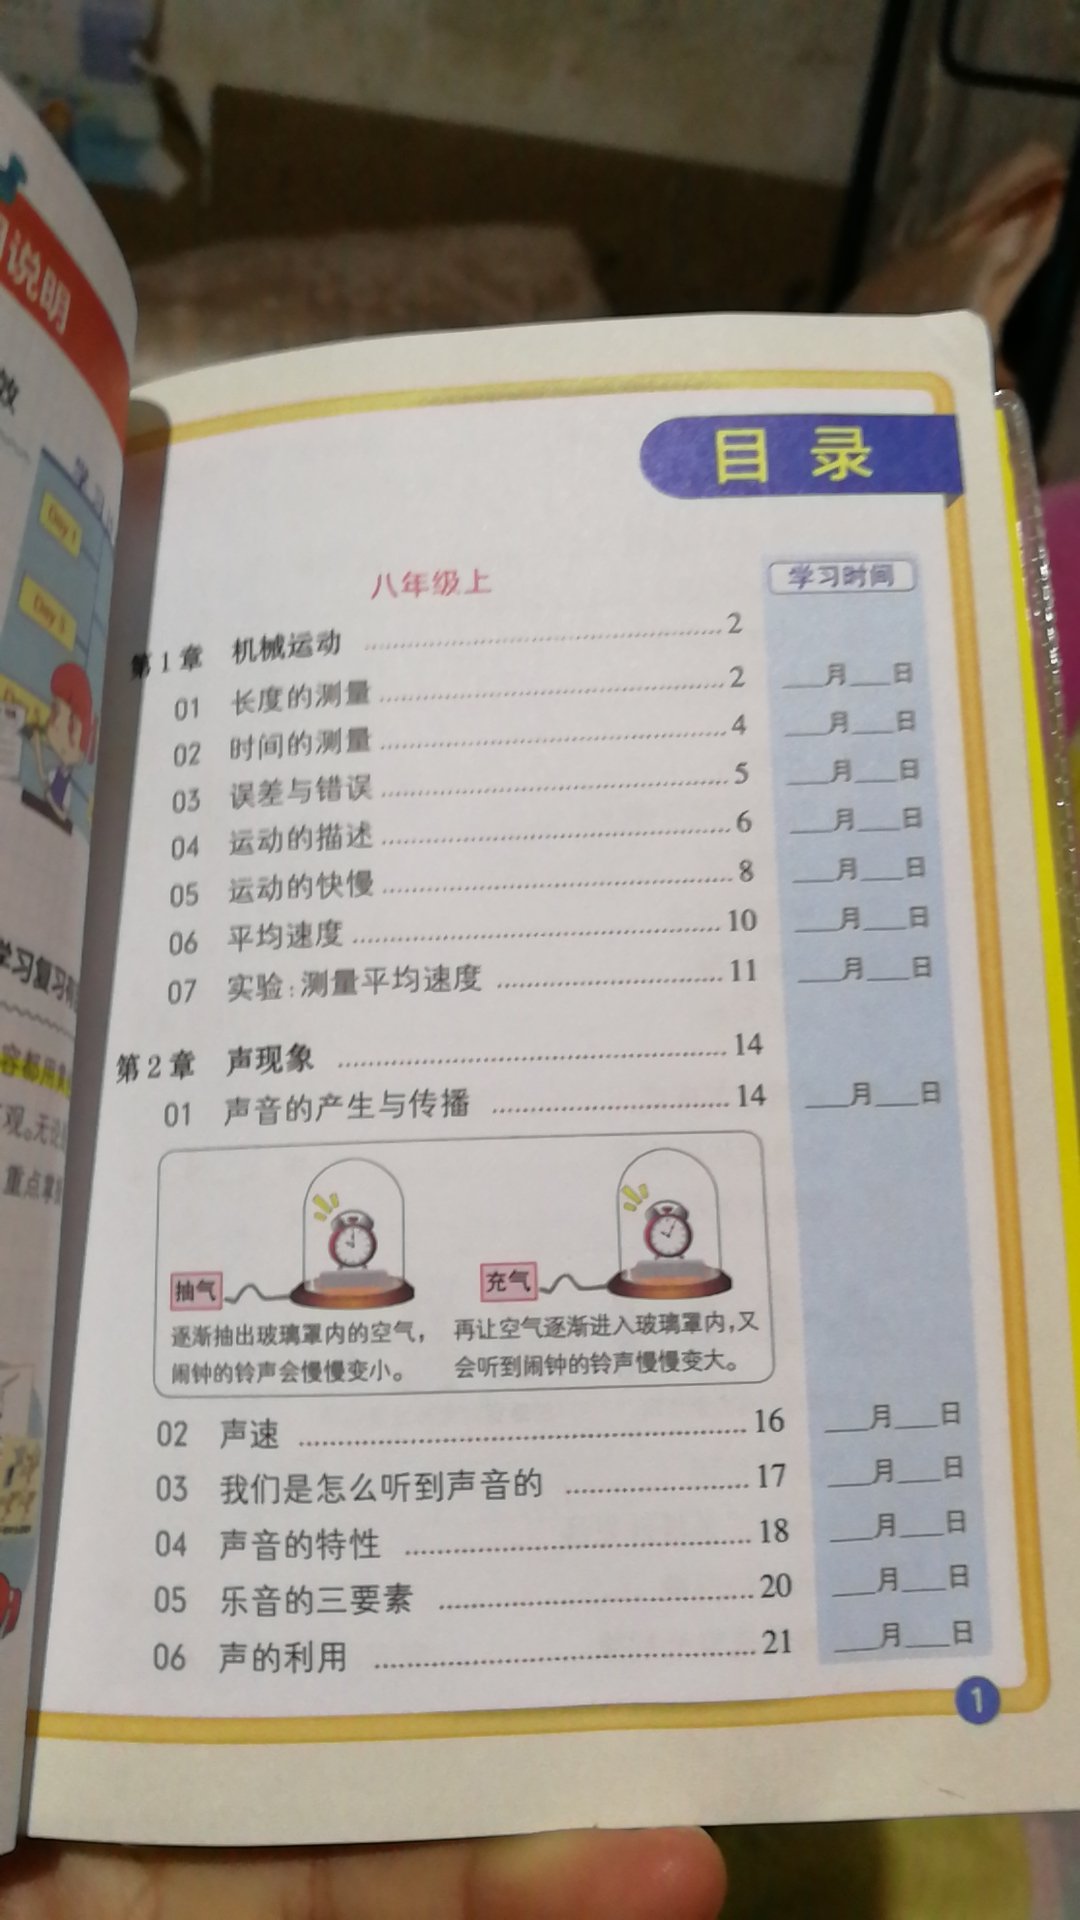 说明
效
学习
Day 1
Day 3
学习复习
容都用
观。无论
重点掌
目录
八年级上
学习时间
第1章 机械运动 2
01 长度的测量 2 月 日
02 时间的测量 4 月 日
03 误差与错误 5 月 日
04 运动的描述 6 月 日
05 运动的快慢 8 月 日
06 平均速度 10 月 日
07 实验:测量平均速度 11 月 日
第2章 声现象 14
01 声音的产生与传播 14 月 日
抽气
逐渐抽出玻璃罩内的空气,
闹钟的铃声会慢慢变小。
充气
再让空气逐渐进入玻璃罩内,又
会听到闹钟的铃声慢慢变大。
02 声速 16 月 日
03 我们是怎么听到声音的 17 月 日
04 声音的特性 18 月 日
05 乐音的三要素 20 月 日
06 声的利用 21 月 日
1